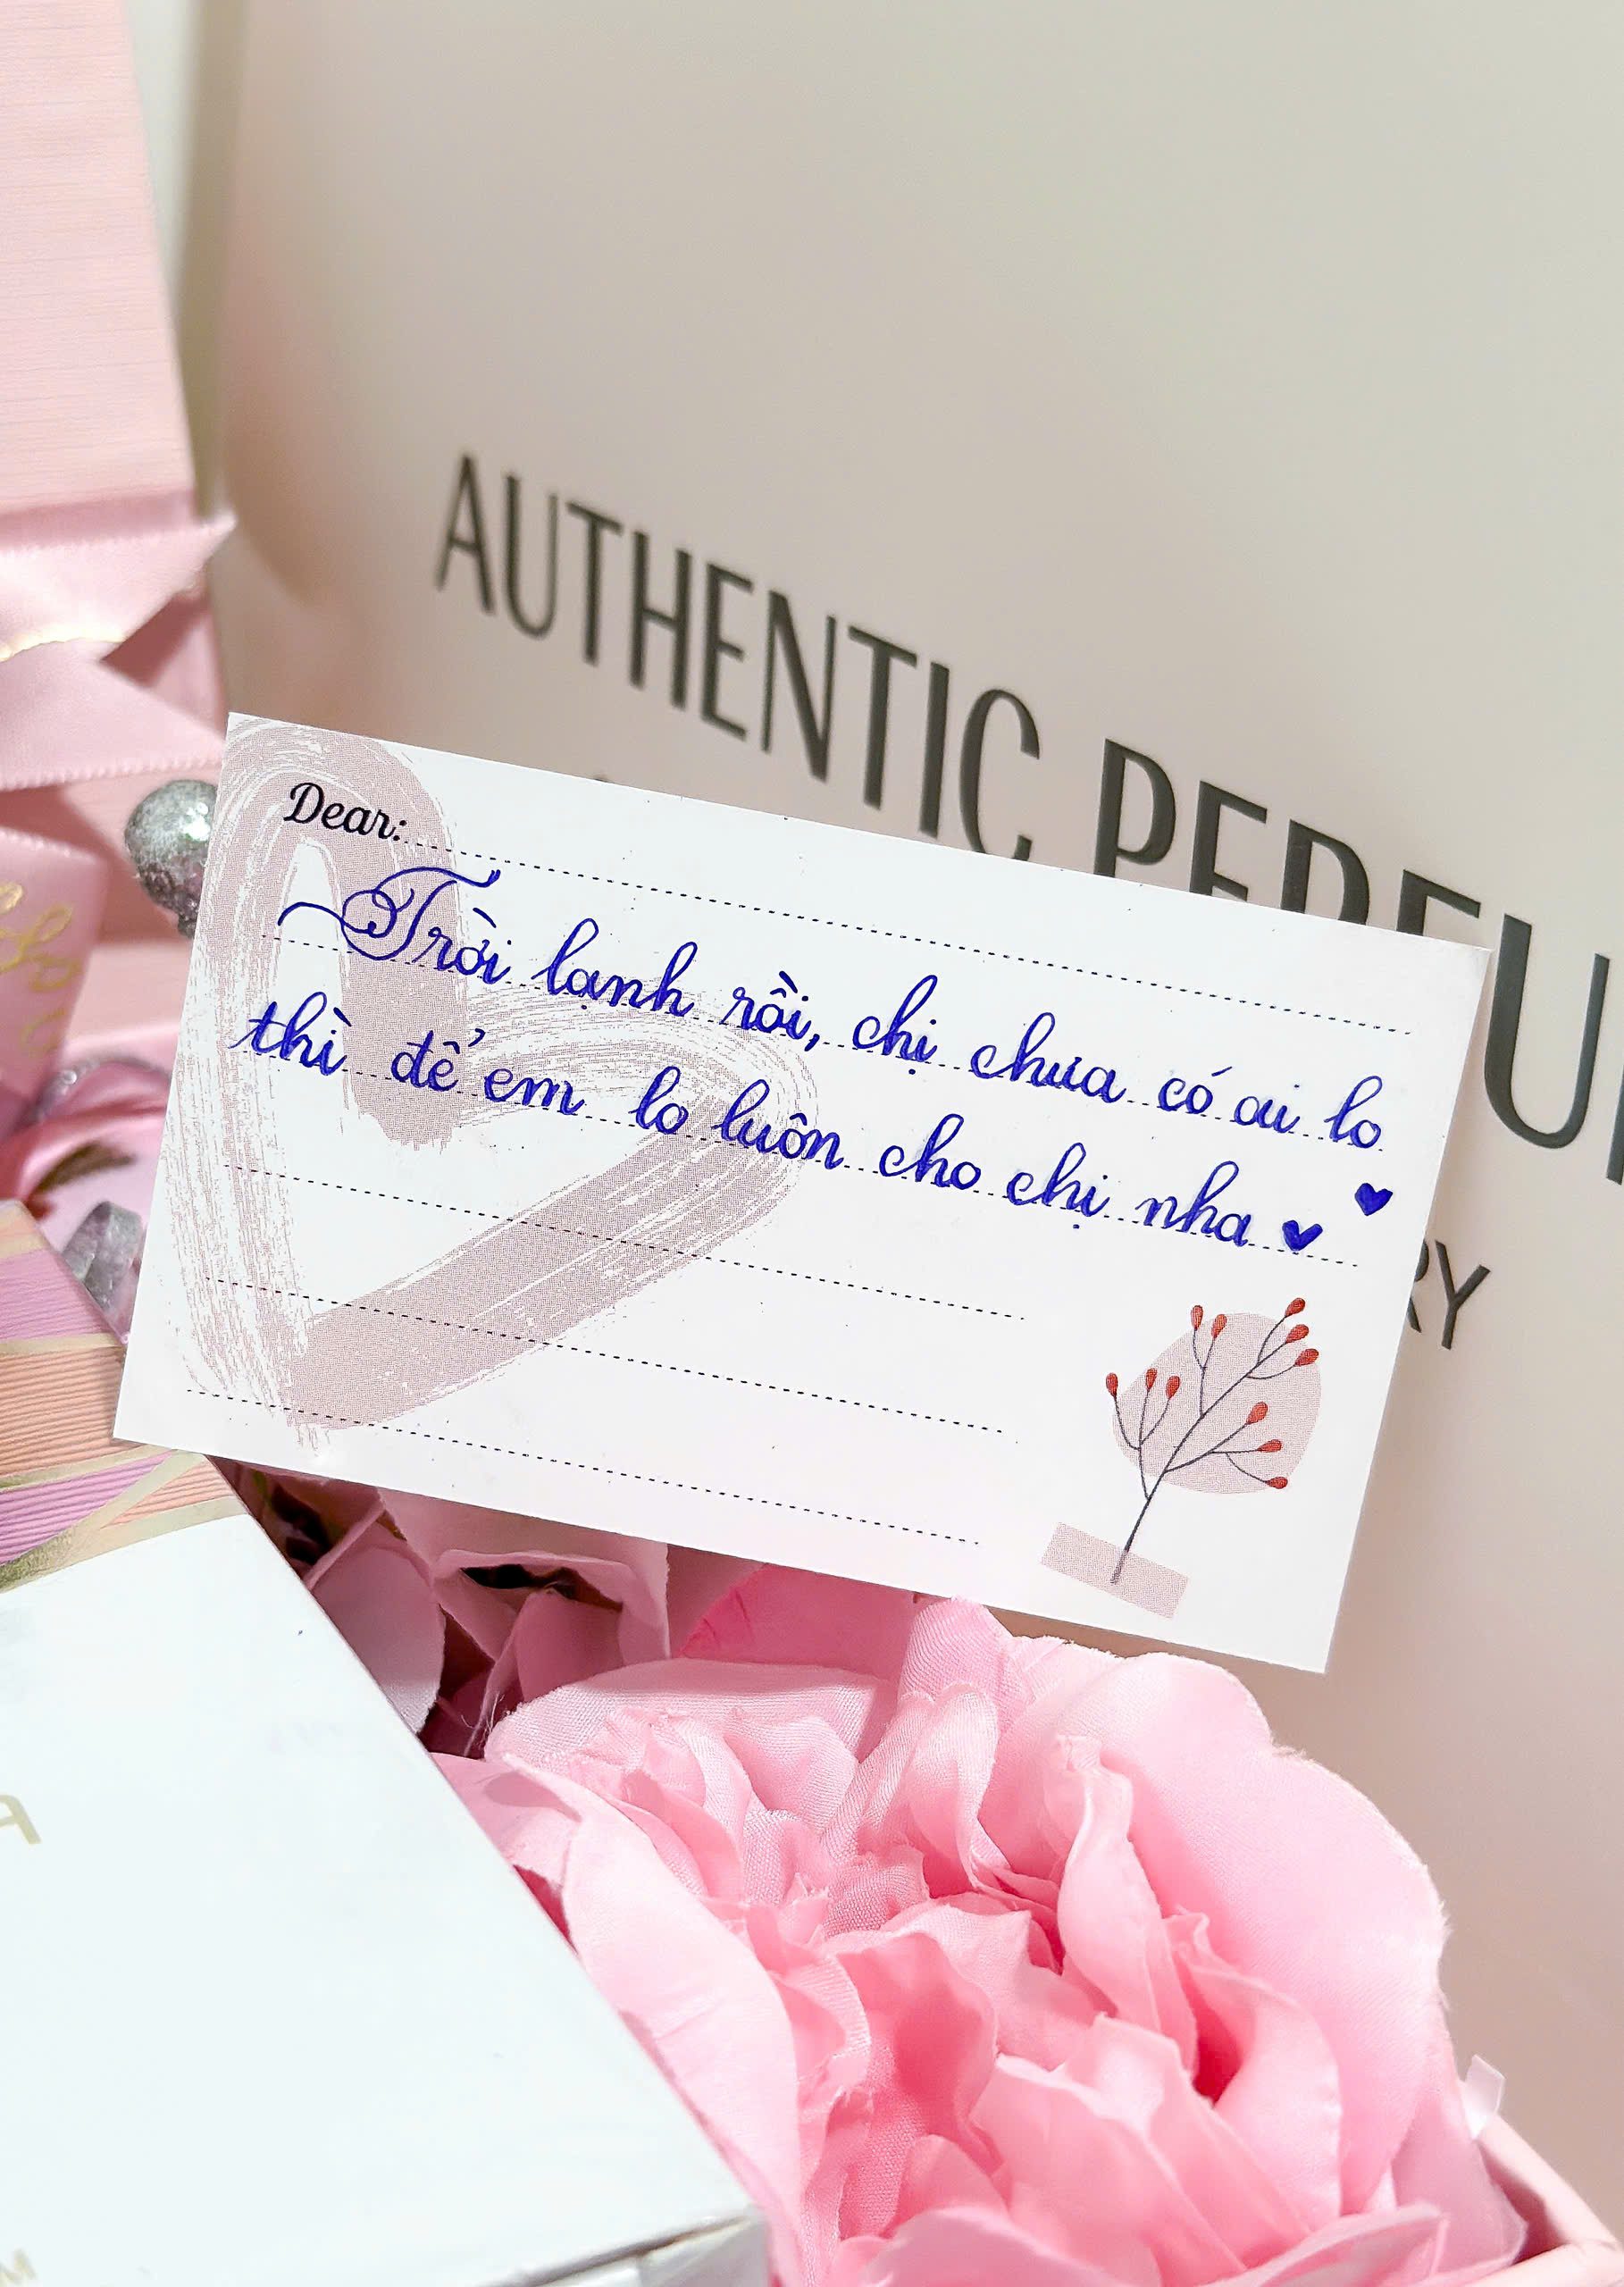 AUTHENTIC PERFU
RY
Dear:
Trời lạnh rồi, chị chưa có ai lo
thì để em lo luôn cho chị nha